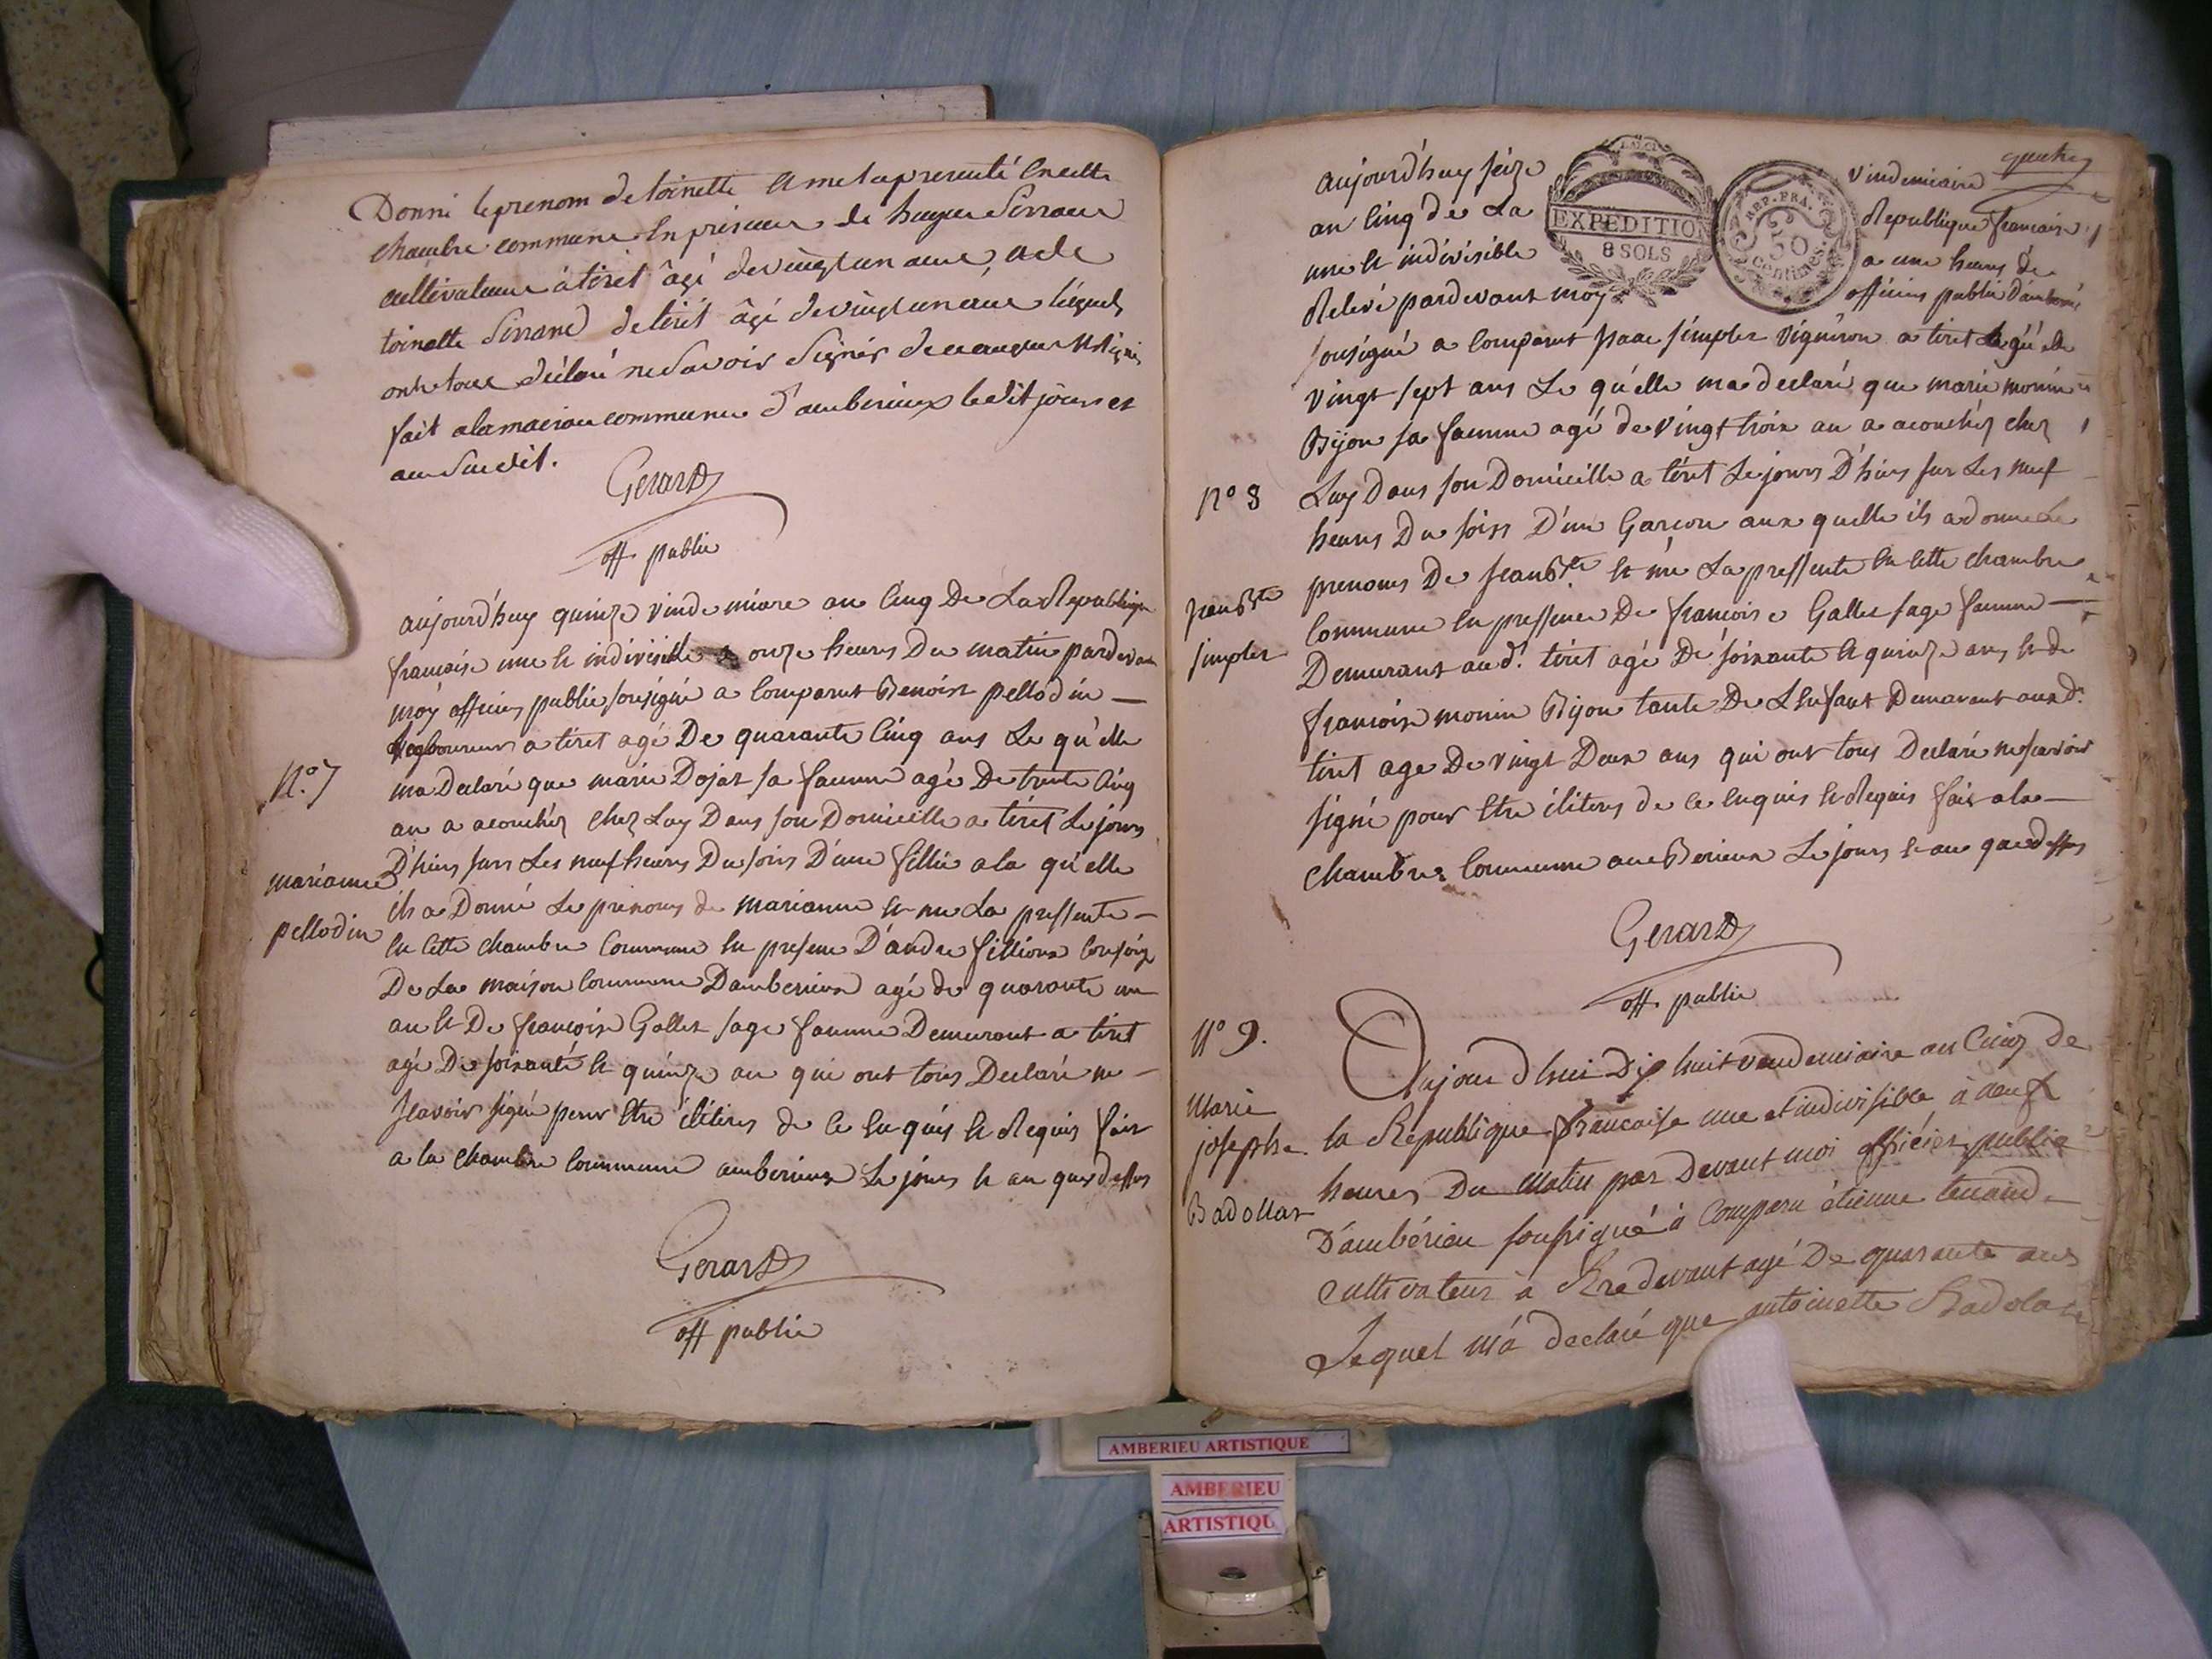 Donné le prenom de toinette et me la presenté en cette
chambre commune en presence de hugue Serrand
cultivateur à tiret âgé de vingt un ans, et de
toinette Serrand de tiret âgé de vingt un ans léquel
ont tous déclaré ne Savoir Signér de ce enquis et
fait a la maison commune d'ambérieux ledit jour et
an Susdit.
Gerard
off. public
aujourd'huy quinze vindemiare an Cinq De La Republique
francaise une et indivisible a onze heures Du matin pardevant
moy officier public sousigné a Comparut Benoist pellodin
Laboureur a tiret agé De quarante Cinq ans Le qu'elle
ma Declaré que marie Dojat sa famme agé De trente Cinq
an a acouchéz chez Luy Dans son Domicille a tiret Le jours
D'hiers surs Les neuf heures Du soirs D'une fillie a la qu'elle
ils a Donné Le prenoms de marianne et me La pressente
en Cette chambre Commune en presence D'andre fillioux
De La maison Commune D'amberieux agé de quarante un
an et De francoise Gallet sage famme Demurant a tiret
agé De soixante et quinze an qui ont tous Declaré ne
scavoir signé pour etre iliterés de Ce enquis et Requis fait
a la chambre Commune amberieux Le jours et an que dessus
N.° 7
marianne
pellodin
Gerard
off public
aujourd'huy séize vindemiaire
an Cinq de La Republique francaise
une et indivisible a une heurs de
Relevé pardevant moy officier public D'amberié
EXPEDITION
8 SOLS
REP. FRA.
50
centimes.
sousigné a Comparut Isaac simplex vigneron a tiret agéé de
vingt sept ans Le qu'elle ma declaré que marie monin
Bijon sa famme agé de vingt trois an a acouchéz chez
Luy Dans son Domicille a tiret Le jours D'hiers sur Les neuf
heurs Du soirs D'un Garcon aux quelle ils a donné Le
prenoms De Jean Bte et me La pressente en Cette chambre
Commune en pressence De francoise Gallet sage famme
Demurant aud.t tiret agé De soixante et quinze ans et de
francoise monin Bijon tante De L'Enfant Demurant aud.t
tiret age De vingt Deux ans qui ont tous Declaré ne scavoir
signé pour etre iliterés de Ce enquis et Requis fait a la
chambre Commune amBerieux Le jours et an que dessus
N° 8
jean Bte
simplex
Gerard
off public
N° 9.
Marie
josephe
Badollar
Aujourd'hui Dix huit vendemiaire an Cinq de
la Republique francaise une et indivisible à neuf
heures Du Matin par Devant moi officier public
D'ambérieu soussigné à Comparu étienne tenand
Cultivateur à agé De quarante ans
Lequel m'à déclaré que antoinette Badolar
AMBERIEU ARTISTIQUE
AMBERIEU
ARTISTIQU